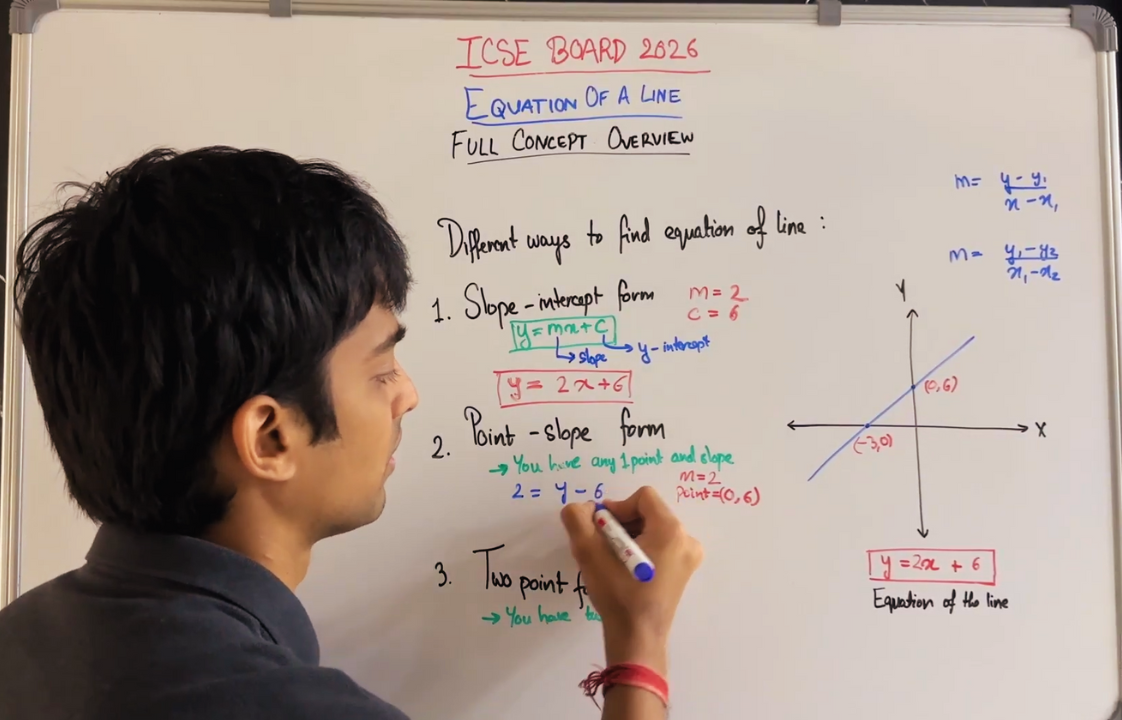 ICSE BOARD 2026
EQUATION OF A LINE
FULL CONCEPT OVERVIEW
Different ways to find equation of line :
1. Slope-intercept form
m = 2
c = 6
y = mx + c
slope
y-intercept
y = 2x + 6
2. Point-slope form
→ You have any 1 point and slope
m = 2
point = (0, 6)
2 = y - 6
3. Two point
→ You have
m = y - y₁ / x - x₁
m = y₁ - y₂ / x₁ - x₂
Y
(0, 6)
X
(-3, 0)
y = 2x + 6
Equation of the line